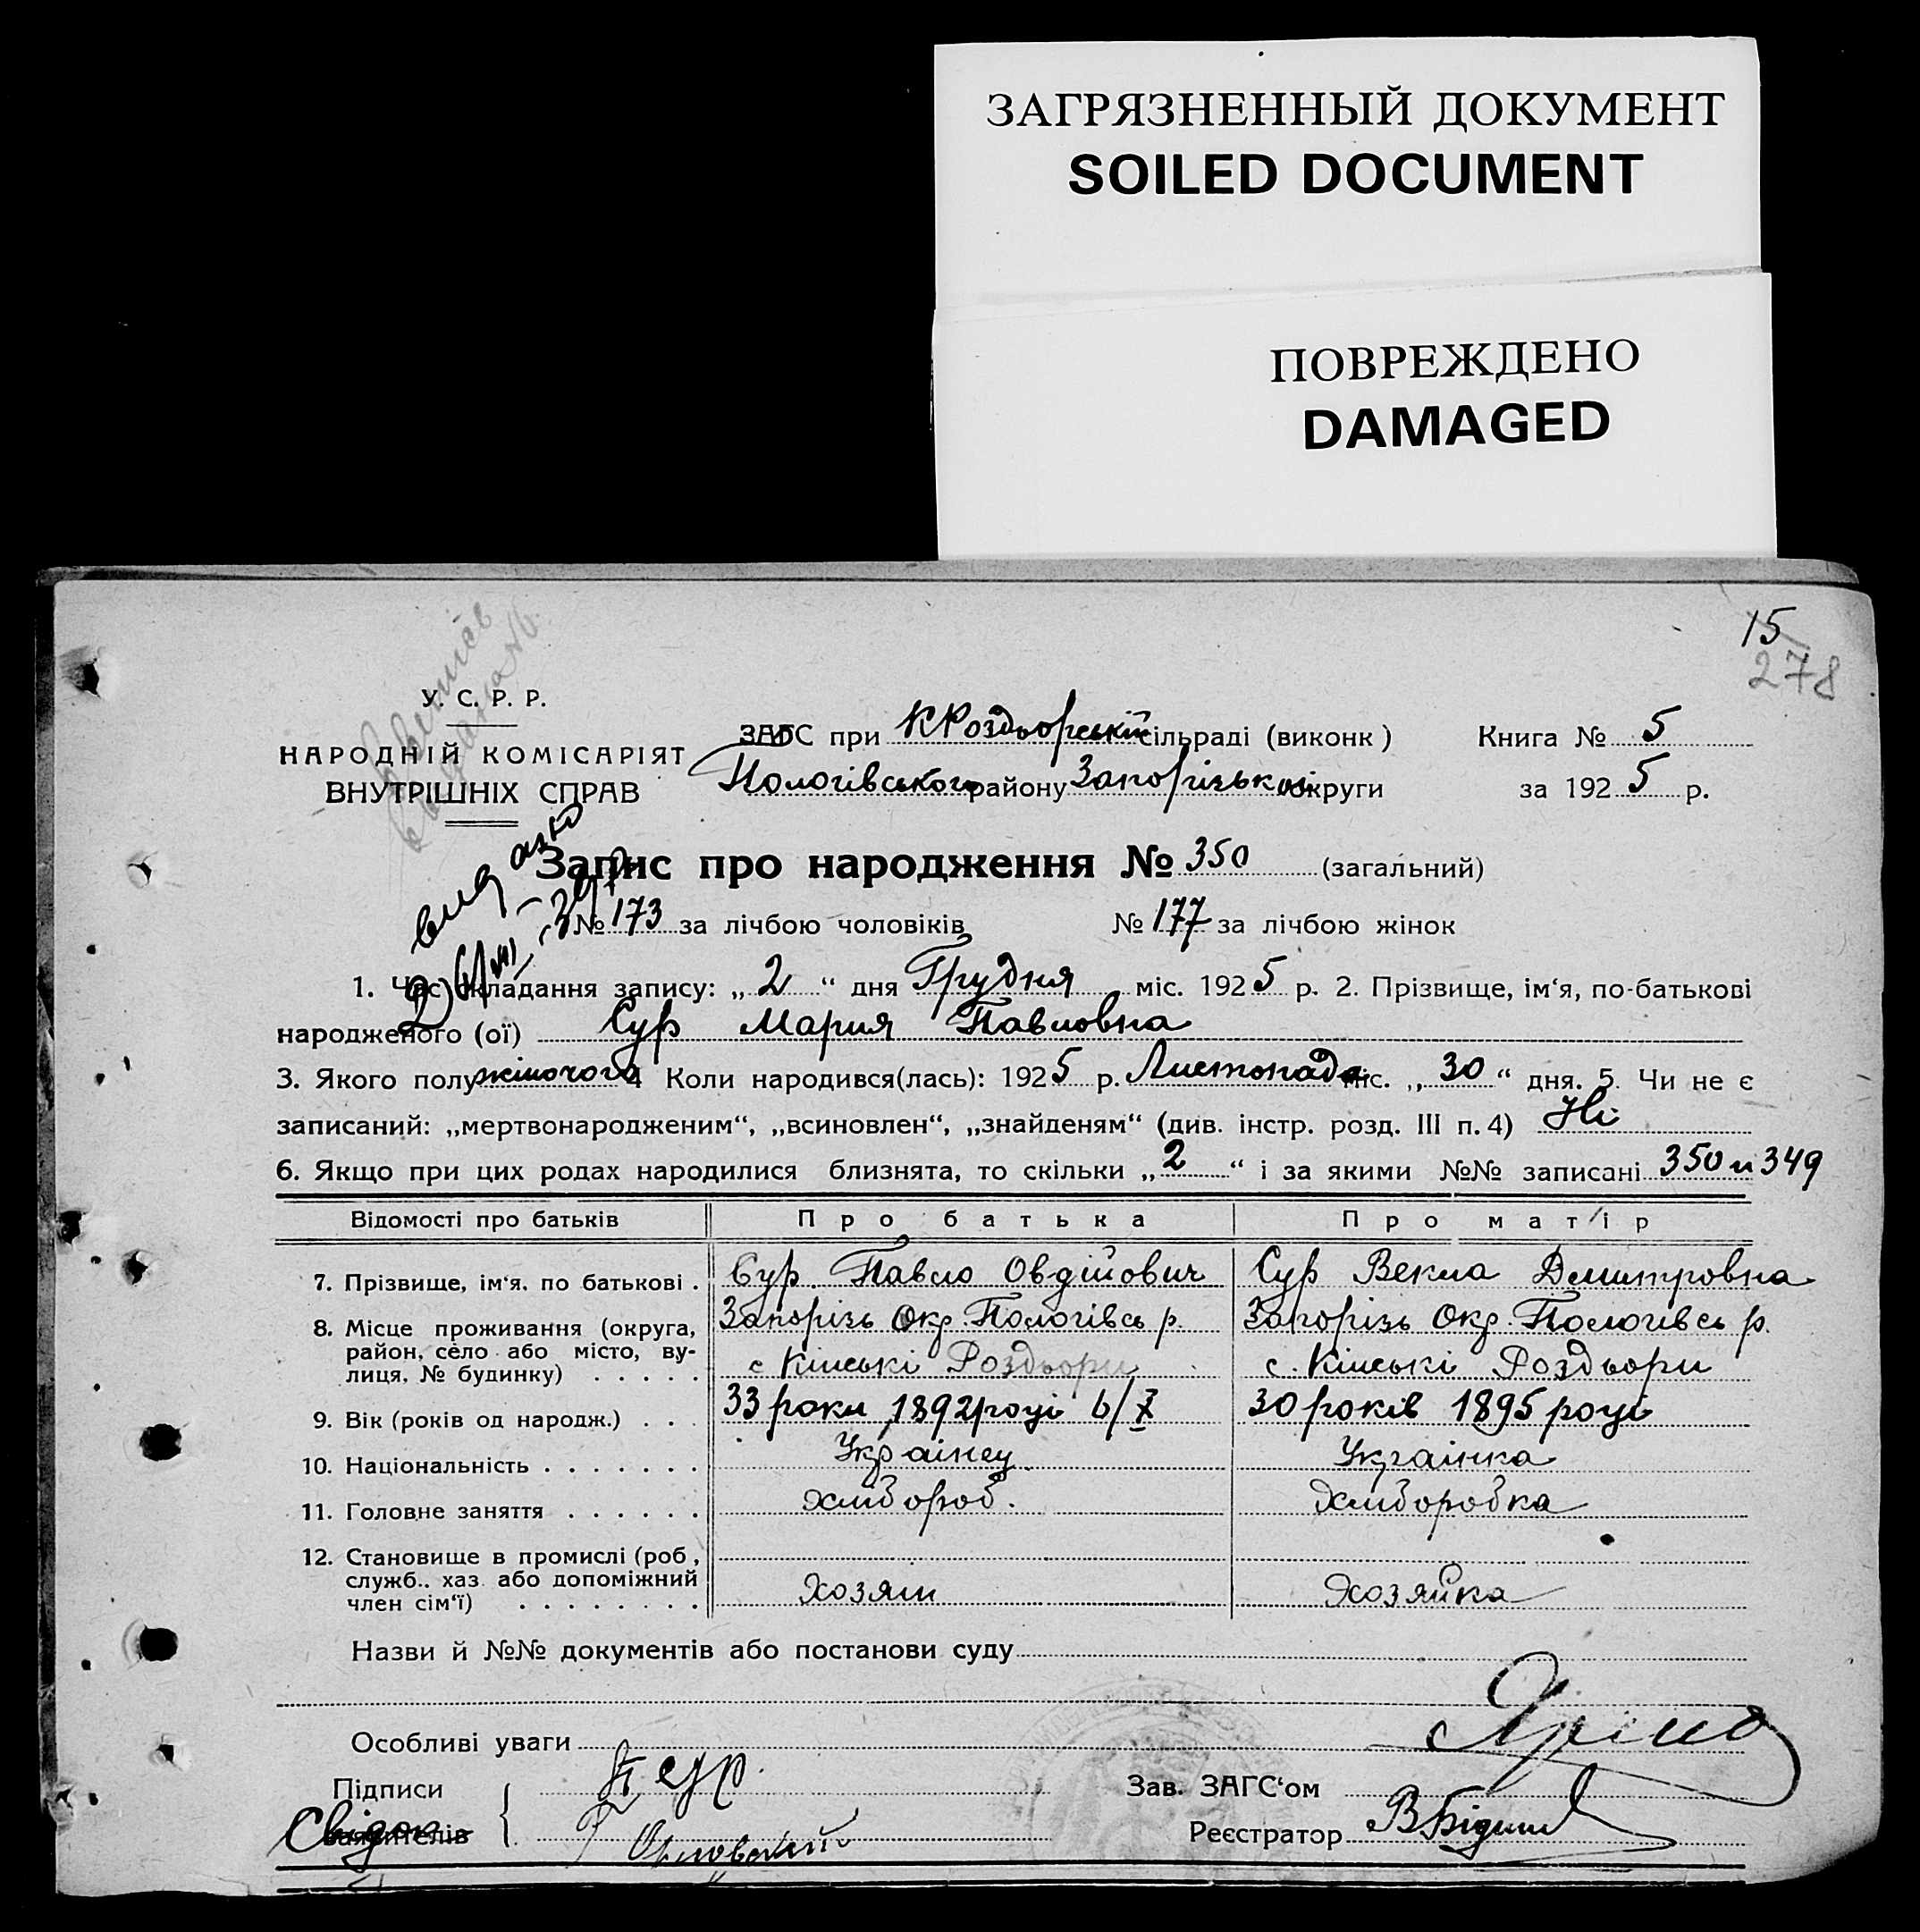 ЗАГРЯЗНЕННЫЙ ДОКУМЕНТ
SOILED DOCUMENT
ПОВРЕЖДЕНО
DAMAGED
15
278
У. С. Р. Р.
НАРОДНІЙ КОМІСАРІЯТ
ВНУТРІШНІХ СПРАВ
ЗАГС при КРоздьорській сільраді (виконк) Книга № 5
Пологівського району Запорізькой округи за 1925 р.
Запис про народження № 350 (загальний)
№ 173 за лічбою чоловіків № 177 за лічбою жінок
1. Час складання запису: „2“ дня Грудня міс. 1925 р. 2. Прізвище, ім‘я, по-батькові
народженого (ої) Сур Мария Павловна
3. Якого полу жіночого 4 Коли народився(лась): 1925 р. Листопада міс. „30“ дня. 5. Чи не є
записаний: „мертвонародженим“, „всиновлен“, „знайденям“ (див. інстр. розд. III п. 4) Ні
6. Якщо при цих родах народилися близнята, то скільки „2“ і за якими №№ записані 350 и 349
Відомості про батьків Про батька Про матір
7. Прізвище, ім‘я, по батькові . Сур Павло Овдійович Сур Векла Дмитровна
8. Місце проживання (округа, Запорізь Окр. Пологівсь р. Запорізь Окр. Пологівсь р.
район, село або місто, ву-
лиця, № будинку) . . . . . с Кінські Роздьори с. Кінські Роздьори
9. Вік (років од народж.) . . . 33 роки 1892 році 30 років 1895 році
10. Національність . . . . . . . Українец Украінка
11. Головне заняття . . . . . . хлібороб. хліборобка
12. Становище в промислі (роб,
служб., хаз. або допоміжний
член сім‘ї) . . . . . . . . хозяін хозяйка
Назви й №№ документів або постанови суду
Особливі уваги
Підписи П Сур. Зав. ЗАГС‘ом
Свідок заявителів Реєстратор